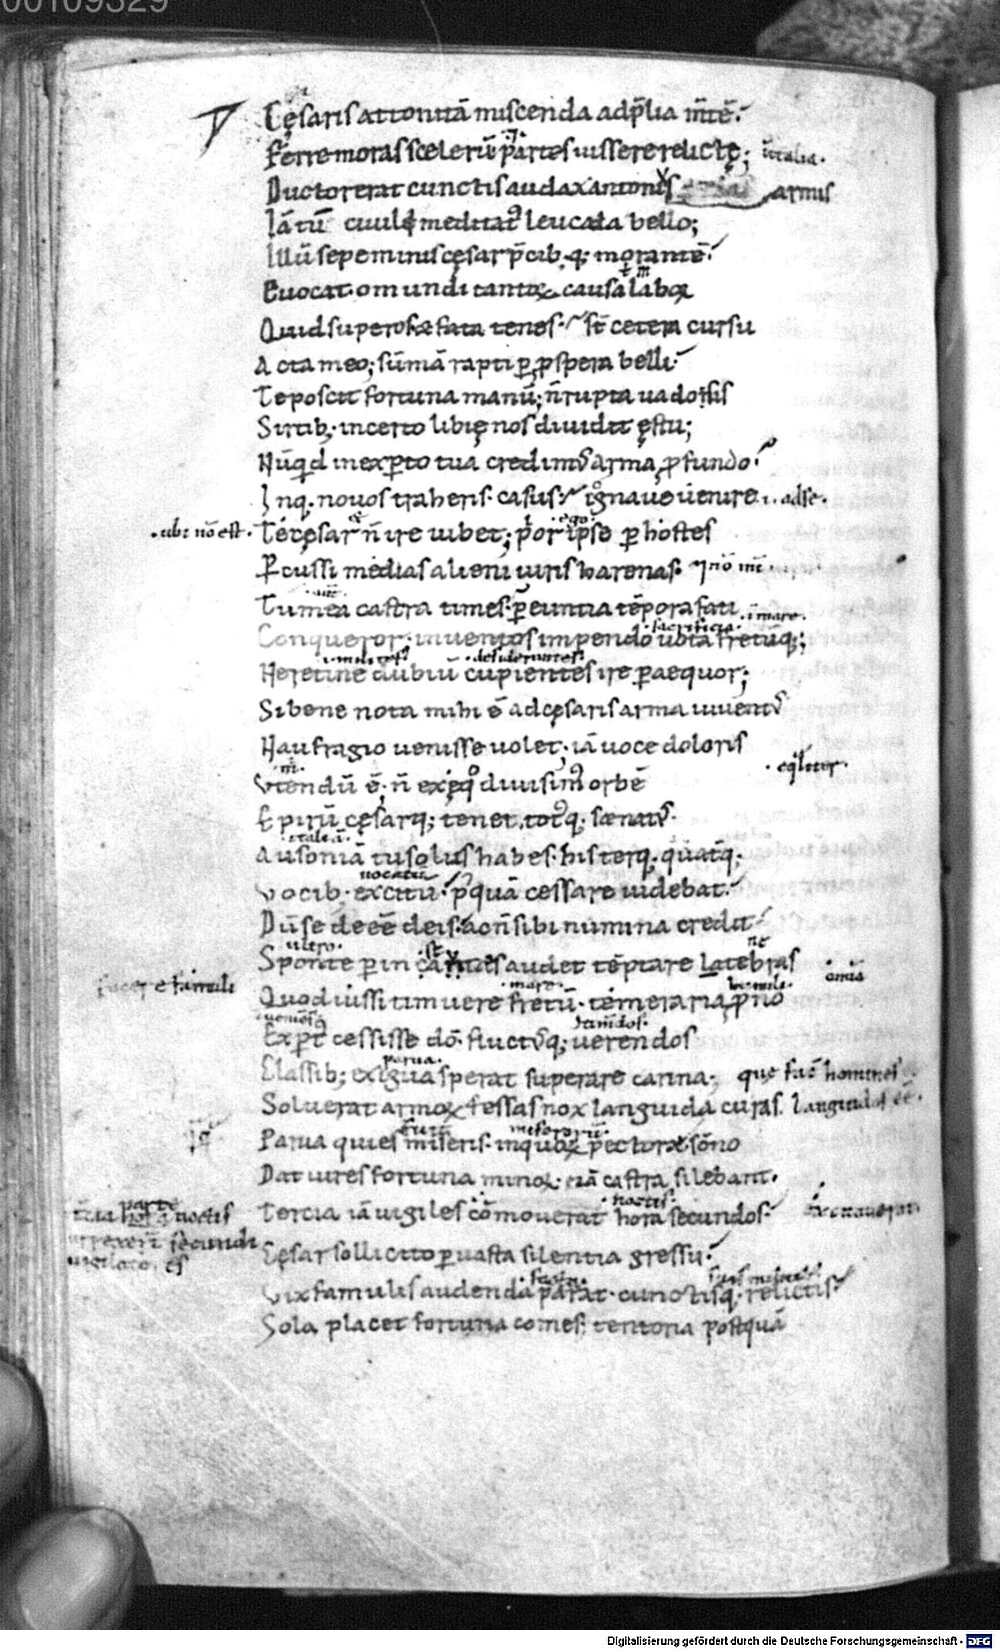 00109329
Cęsaris attonitā miscenda ad p̄lia m̄tē.
Ferre moras scelerū partes iussere relictę; italia.
Ductor erat cunctis audax antonis armis
Iā tū ciuili meditat' leucata bello;
Illū sepe minis cęsar p̄cib; q; morantē.
Euocat. o mundi tantoꝝ causa laboꝝ
Quid superos & fata tenes. st̄ cetera cursu
Acta meo; sūmā rapti ꝑ ꝓspera belli
Te poscit fortuna manū; n̄ rupta uadosis
Sirtib; incerto libię nos diuidit ęstu;
Nūqd inexꝑto tua credim' arma ꝓfundo.
Inq; nouos traheris casus. ignaue uenire .i. ad se.
.ubi nō est. Te cęsar n̄ ire iubet; prior ipse ꝑ hostes
ego
Ꝑcussi medias alieni iuris harenas.
Tu mea castra times. ꝑeuntia tēpora fati .i. mare.
sacrificia.
Conqueror; in uentos impendo uota fretūq;;
.i. milites. .desiderantes.
Ne retine dubiū cupientes ire ꝑ aequor;
Si bene nota mihi ē ad cęsaris arma iuuent'
Naufragio uenisse uolet; iā uoce doloris
Vtendū ē; n̄ ex ęquo diuisim' orbē
Epirū cęsarq; tenet totq; senat'.
italiā.
Ausoniā tu solus habes. his terq; quatq;
uocatū
Vocib; excitū. p'quā cessare uidebat.
Dū se deeē deis. ac n̄ sibi numina credit
ultro.
Sponte ꝑ in cautas audet tēptare latebras
facere famuli
.mare.
Quod iussi timuere fretū. temeraria ꝓno
timidos.
Exꝑt' cessisse dō. fluct'q; uerendos
parua.
Classib; exigua sperat superare carina;
Soluerat armoꝝ fessas nox languida curas.
miseroꝝ
Parua quies miseris. in quoꝝ pectora sōno
Dat uires fortuna minoꝝ. iā castra silebant.
noctis.
Tercia iā uigiles cōmouerat hora secundos.
Cęsar sollicito ꝑ uasta silentia gressu.
Vix famulis audenda parat. cunctisq; relictis.
Sola placet fortuna comes; tentoria postquā
Digitalisierung gefördert durch die Deutsche Forschungsgemeinschaft - DFG